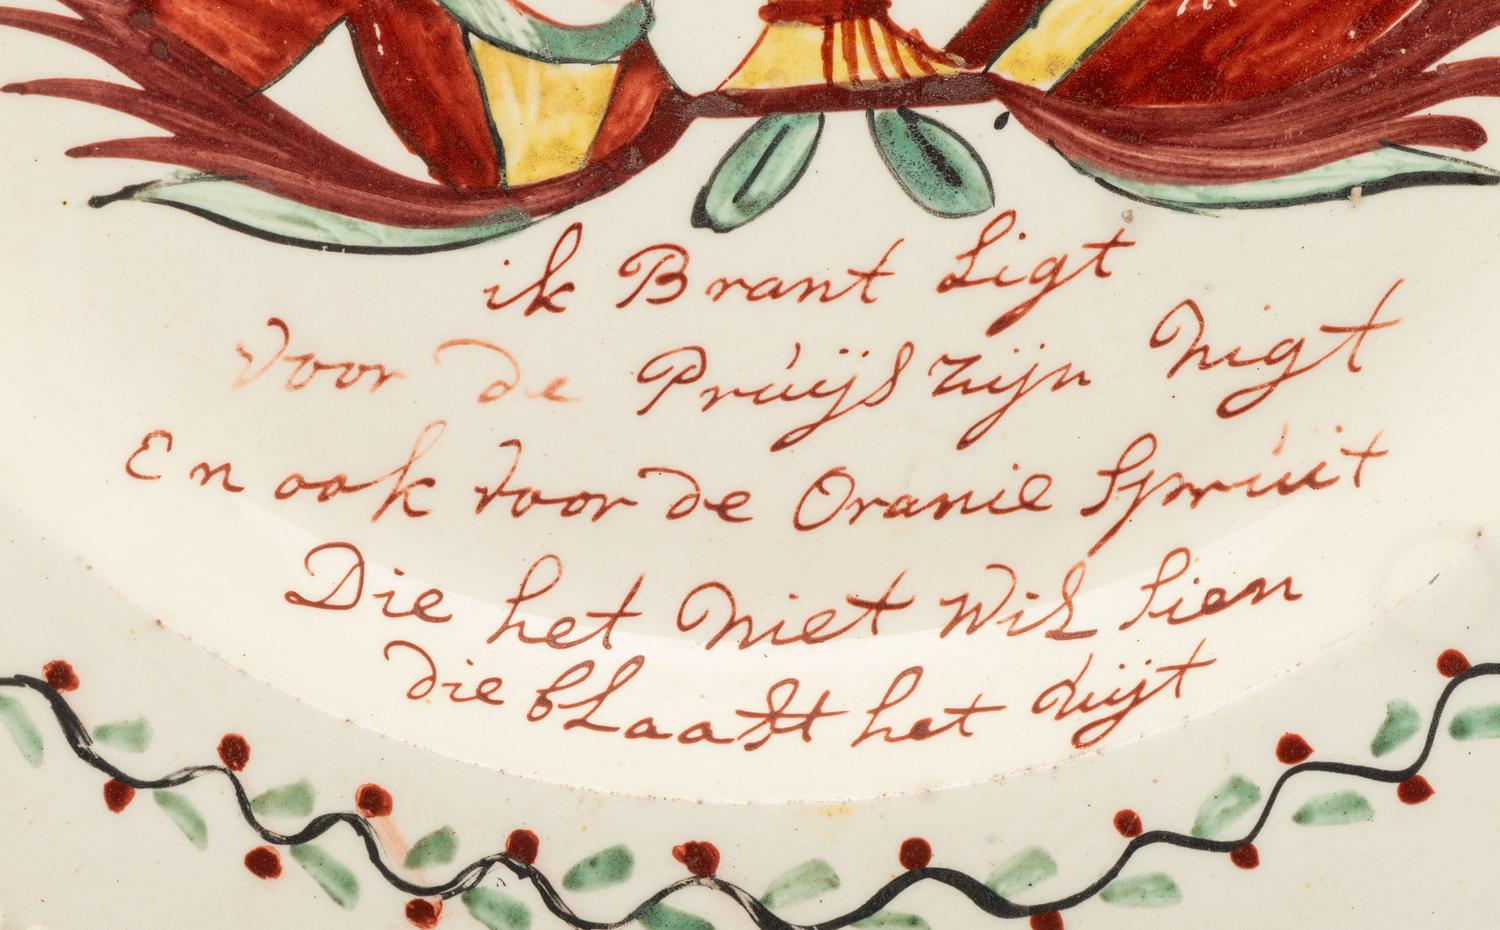 ik Brant Ligt
Voor de Prúÿs zijn Nigt
En ook voor de Oranie Sprúit
Die het Niet Wil sien
die bLaast het Uijt